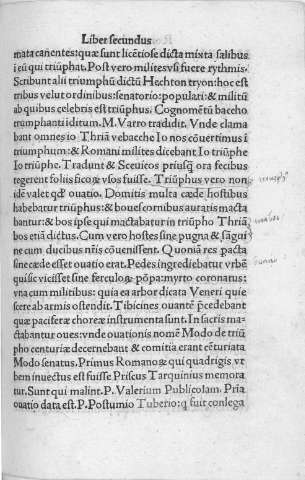 Liber secundus
mata canentes: quæ sunt licētiose dicta mixta salibus
i eū qui triūphat. Post vero milites vsi fuere rythmis.
Scribunt alii triumphū dictū Hechton tryon: hoc est
tribus velut ordinibus: senatorio: populari: & militū
ab quibus celebris est triūphus. Cognomētū baccho
triumphanti iditum. M. Varro tradidit. Vnde clama
bant omnes io Thriā vebacche Io nos cōuertimus i
triumphum: & Romani milites dicebant Io triūphe
Io triūphe. Tradunt & Sceuicos priusq̄ ora fecibus
regerent foliis ficoꝝ vsos fuisse. Triūphus vero non
idē valet qđ ouatio. Domitis multa cæde hostibus
habebatur triūphus: & boues cornibus auratis macta
bantur: & bos ipse qui mactabatur in triūpho Thriā
bos etiā dictus. Cum vero hostes sine pugna & sāgui
ne cum ducibus nr̄is cōuenissent. Quoniā res pacta
sine cæde esset ouatio erat. Pedes ingrediebatur vrbē
quisic vicisset sine ferculoꝝ pōpa: myrto coronatus:
vna cum militibus: quia ea arbor dicata Veneri quie
scere ab armis ostendit. Tibicines ouantē p̄cedebant
quæ pacifera choreæ instrumenta sunt. In sacris ma
ctabantur oues: vnde ouationis nomē Modo de triū
pho centuriæ decernebant & comitia erant cēturiata
Modo senatus. Primus Romanoꝝ qui quadrigis vr
bem inuectus est fuisse Priscus Tarquinius memora
tur. Sunt qui malint. P. Valerium Publicolam. Pr̄ia
ouatio data est. P. Postumio Tuberto: q̄ fuit conlega